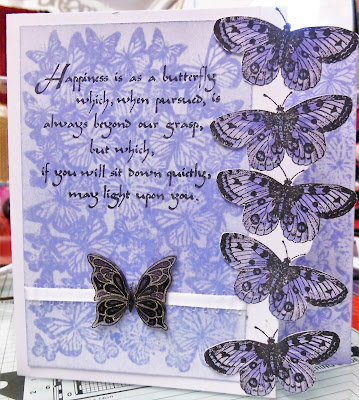 Happiness is as a butterfly
which, when pursued, is
always beyond our grasp,
but which,
if you will sit down quietly,
may light upon you.